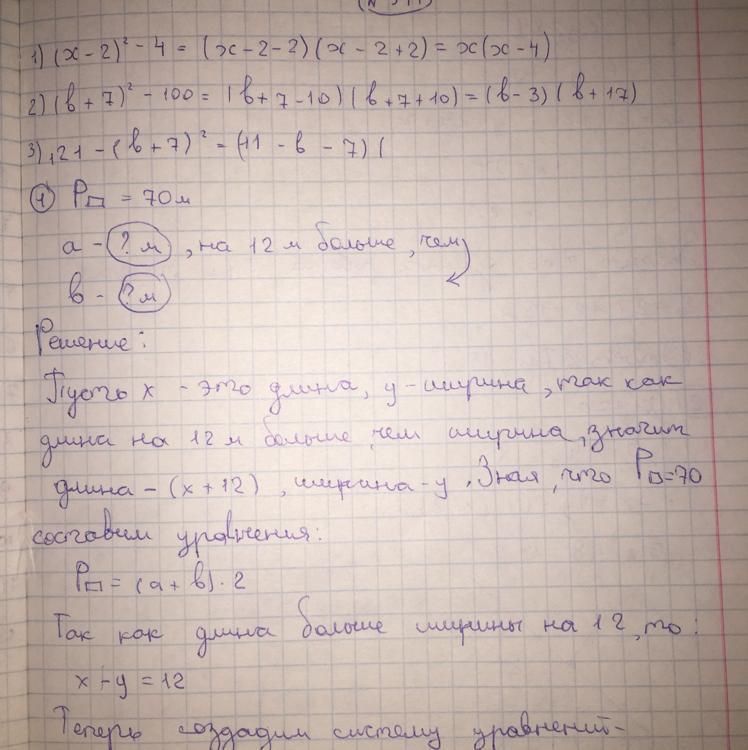 1) (x-2)² - 4 = (x-2-2)(x-2+2) = x(x-4)
2) (в+7)² - 100 = (в+7-10)(в+7+10) = (в-3)(в+17)
3) 121 - (в+7)² = (11 - в - 7)(
④ P▭ = 70м
а - ? м, на 12 м больше, чем
в - ? м
Решение:
Пусть x - это длина, y - ширина, так как
длина на 12 м больше, чем ширина, значит
длина - (x+12), ширина - y. Зная, что P▭=70
составим уравнения:
P▭ = (а + в) · 2
Так как длина больше ширины на 12, то:
x - y = 12
Теперь создадим систему уравнений-